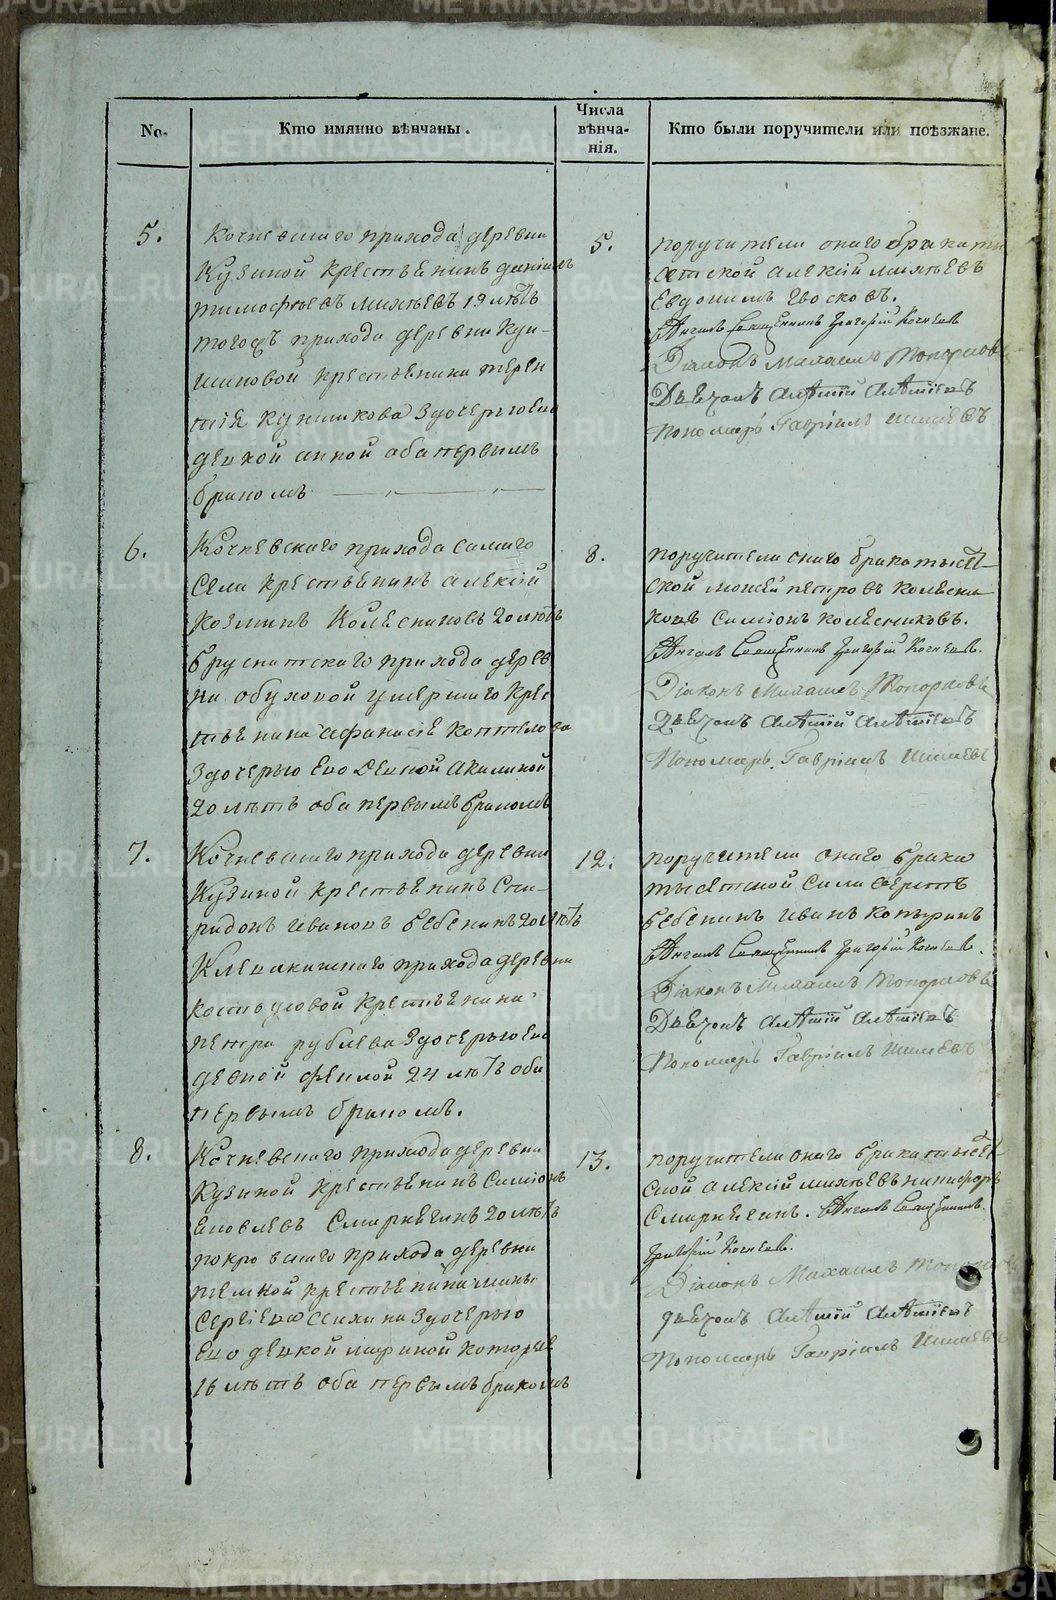 No.
Кто имянно вѣнчаны.
Числа вѣнча-
нія.
Кто были поручители или поѣзжане.
5.
Кочневскаго прихода деревни
Кузиной крестьянинъ даніилъ
тимофѣевъ михѣевъ 19 лѣтъ
тогожъ прихода деревни Куш-
никовой крестьянина терен
тія кушникова здочерью ево
девкой анной оба первымъ
бракомъ
5.
поручители онаго брака ты
сятской алексій михѣевъ
Евдокимъ
Вѣнчалъ Священникъ Григорій Кочневъ
Діаконъ Михаилъ Топорковъ
Дьячокъ
Пономарь Гавріилъ Шишевъ
6.
Кочневскаго прихода самаго
села крестьянинъ алексій
козминъ Колесниковъ 20 лѣтъ
бруснятскаго прихода дерев
ни обуховой умершаго крес
тьянина афанасія
здочерью Ево девкой акилиной
20 лѣтъ оба первымъ бракомъ
8.
поручители онаго брака тысят
ской мокей петровъ колесни
ковъ симіонъ колесниковъ.
Вѣнчалъ Священникъ Григорій Кочневъ.
Діаконъ Михаилъ Топорковъ
Дьячокъ
Пономарь Гавріилъ Шишевъ
7.
Кочневскаго прихода деревни
Кузиной крестьянинъ Спи-
ридонъ ивановъ бебенинъ 20 лѣтъ
Клевакинскаго прихода деревни
костоусовой крестьянина
петра рублева здочерью ево
девкой феклой 24 лѣтъ оба
первымъ бракомъ.
12.
поручители онаго брака
тысятской
бебенинъ иванъ копыринъ
Вѣнчалъ Священникъ Григорій Кочневъ.
Діаконъ Михаилъ Топорковъ
Дьячокъ
Пономарь Гавріилъ Шишевъ
8.
Кочневскаго прихода деревни
Кузиной крестьянинъ Симіонъ
Яковлевъ Смирнягинъ 20 лѣтъ
покровскаго прихода деревни
крестьянина
Сергіева здочерью
Ево девкой мариной которые
16 лѣтъ оба первымъ бракомъ
13.
поручители онаго брака тысят
ской алексій михѣевъ никифоръ
Смирнягинъ. Вѣнчалъ Священникъ
Григорій Кочневъ.
Діаконъ Михаилъ
дьячокъ
Пономарь Гавріилъ Шишевъ
METRIKI.GASO-URAL.RU